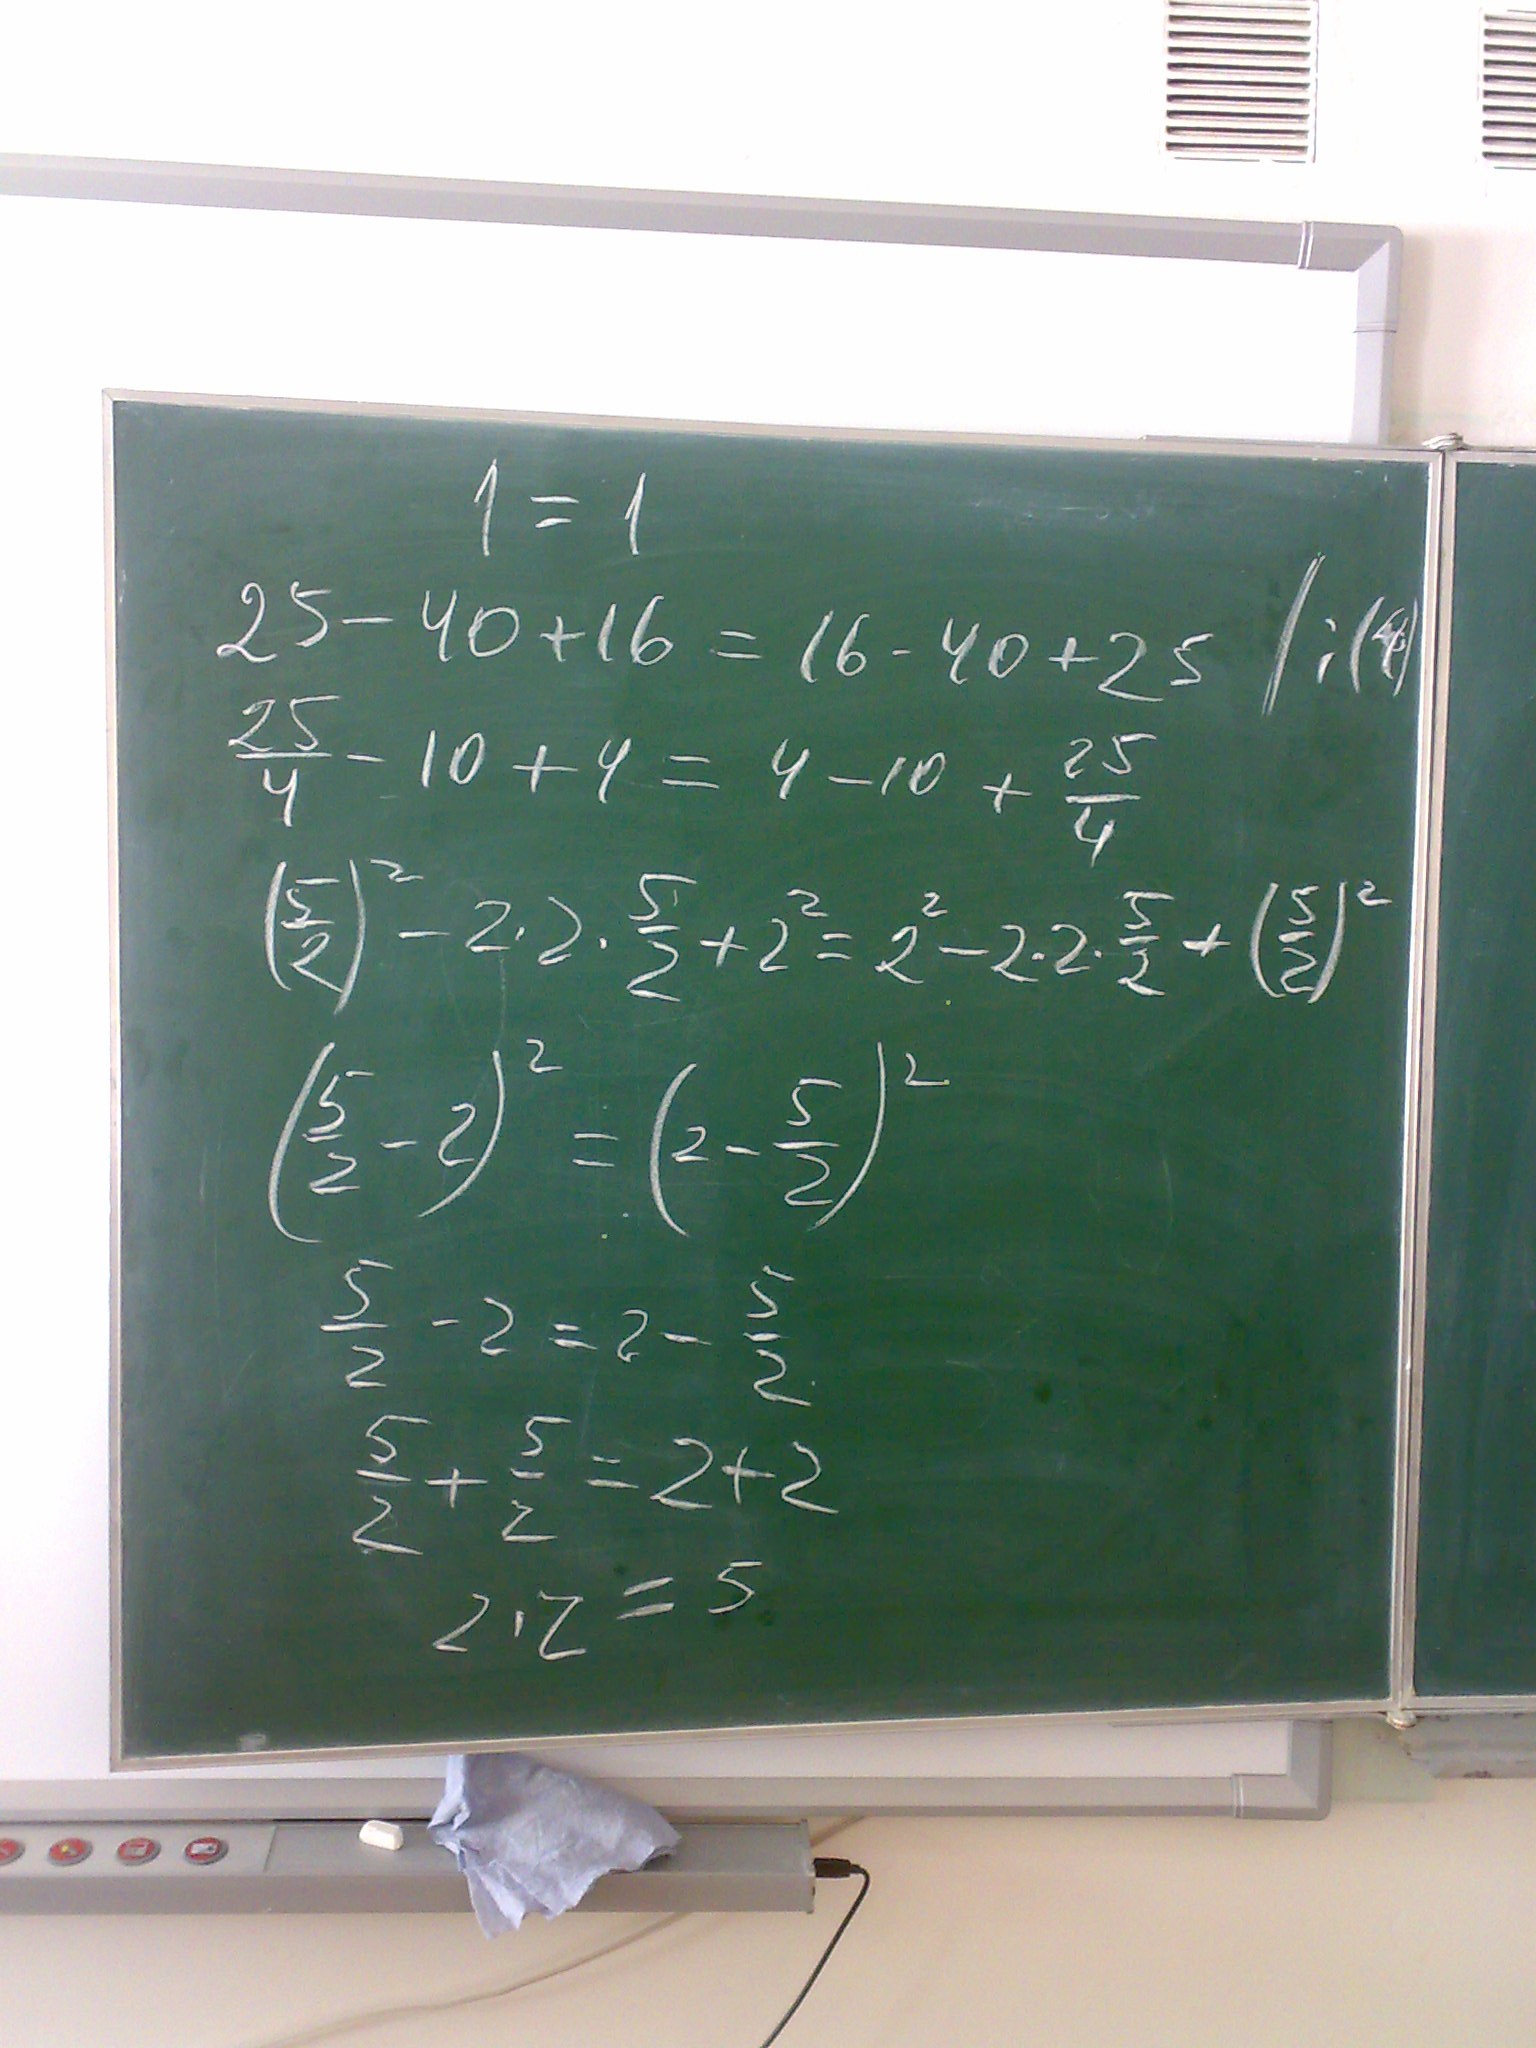 1 = 1
25 - 40 + 16 = 16 - 40 + 25 / : (4)
25/4 - 10 + 4 = 4 - 10 + 25/4
(5/2)² - 2·2·5/2 + 2² = 2² - 2·2·5/2 + (5/2)²
(5/2 - 2)² = (2 - 5/2)²
5/2 - 2 = 2 - 5/2
5/2 + 5/2 = 2 + 2
2·2 = 5